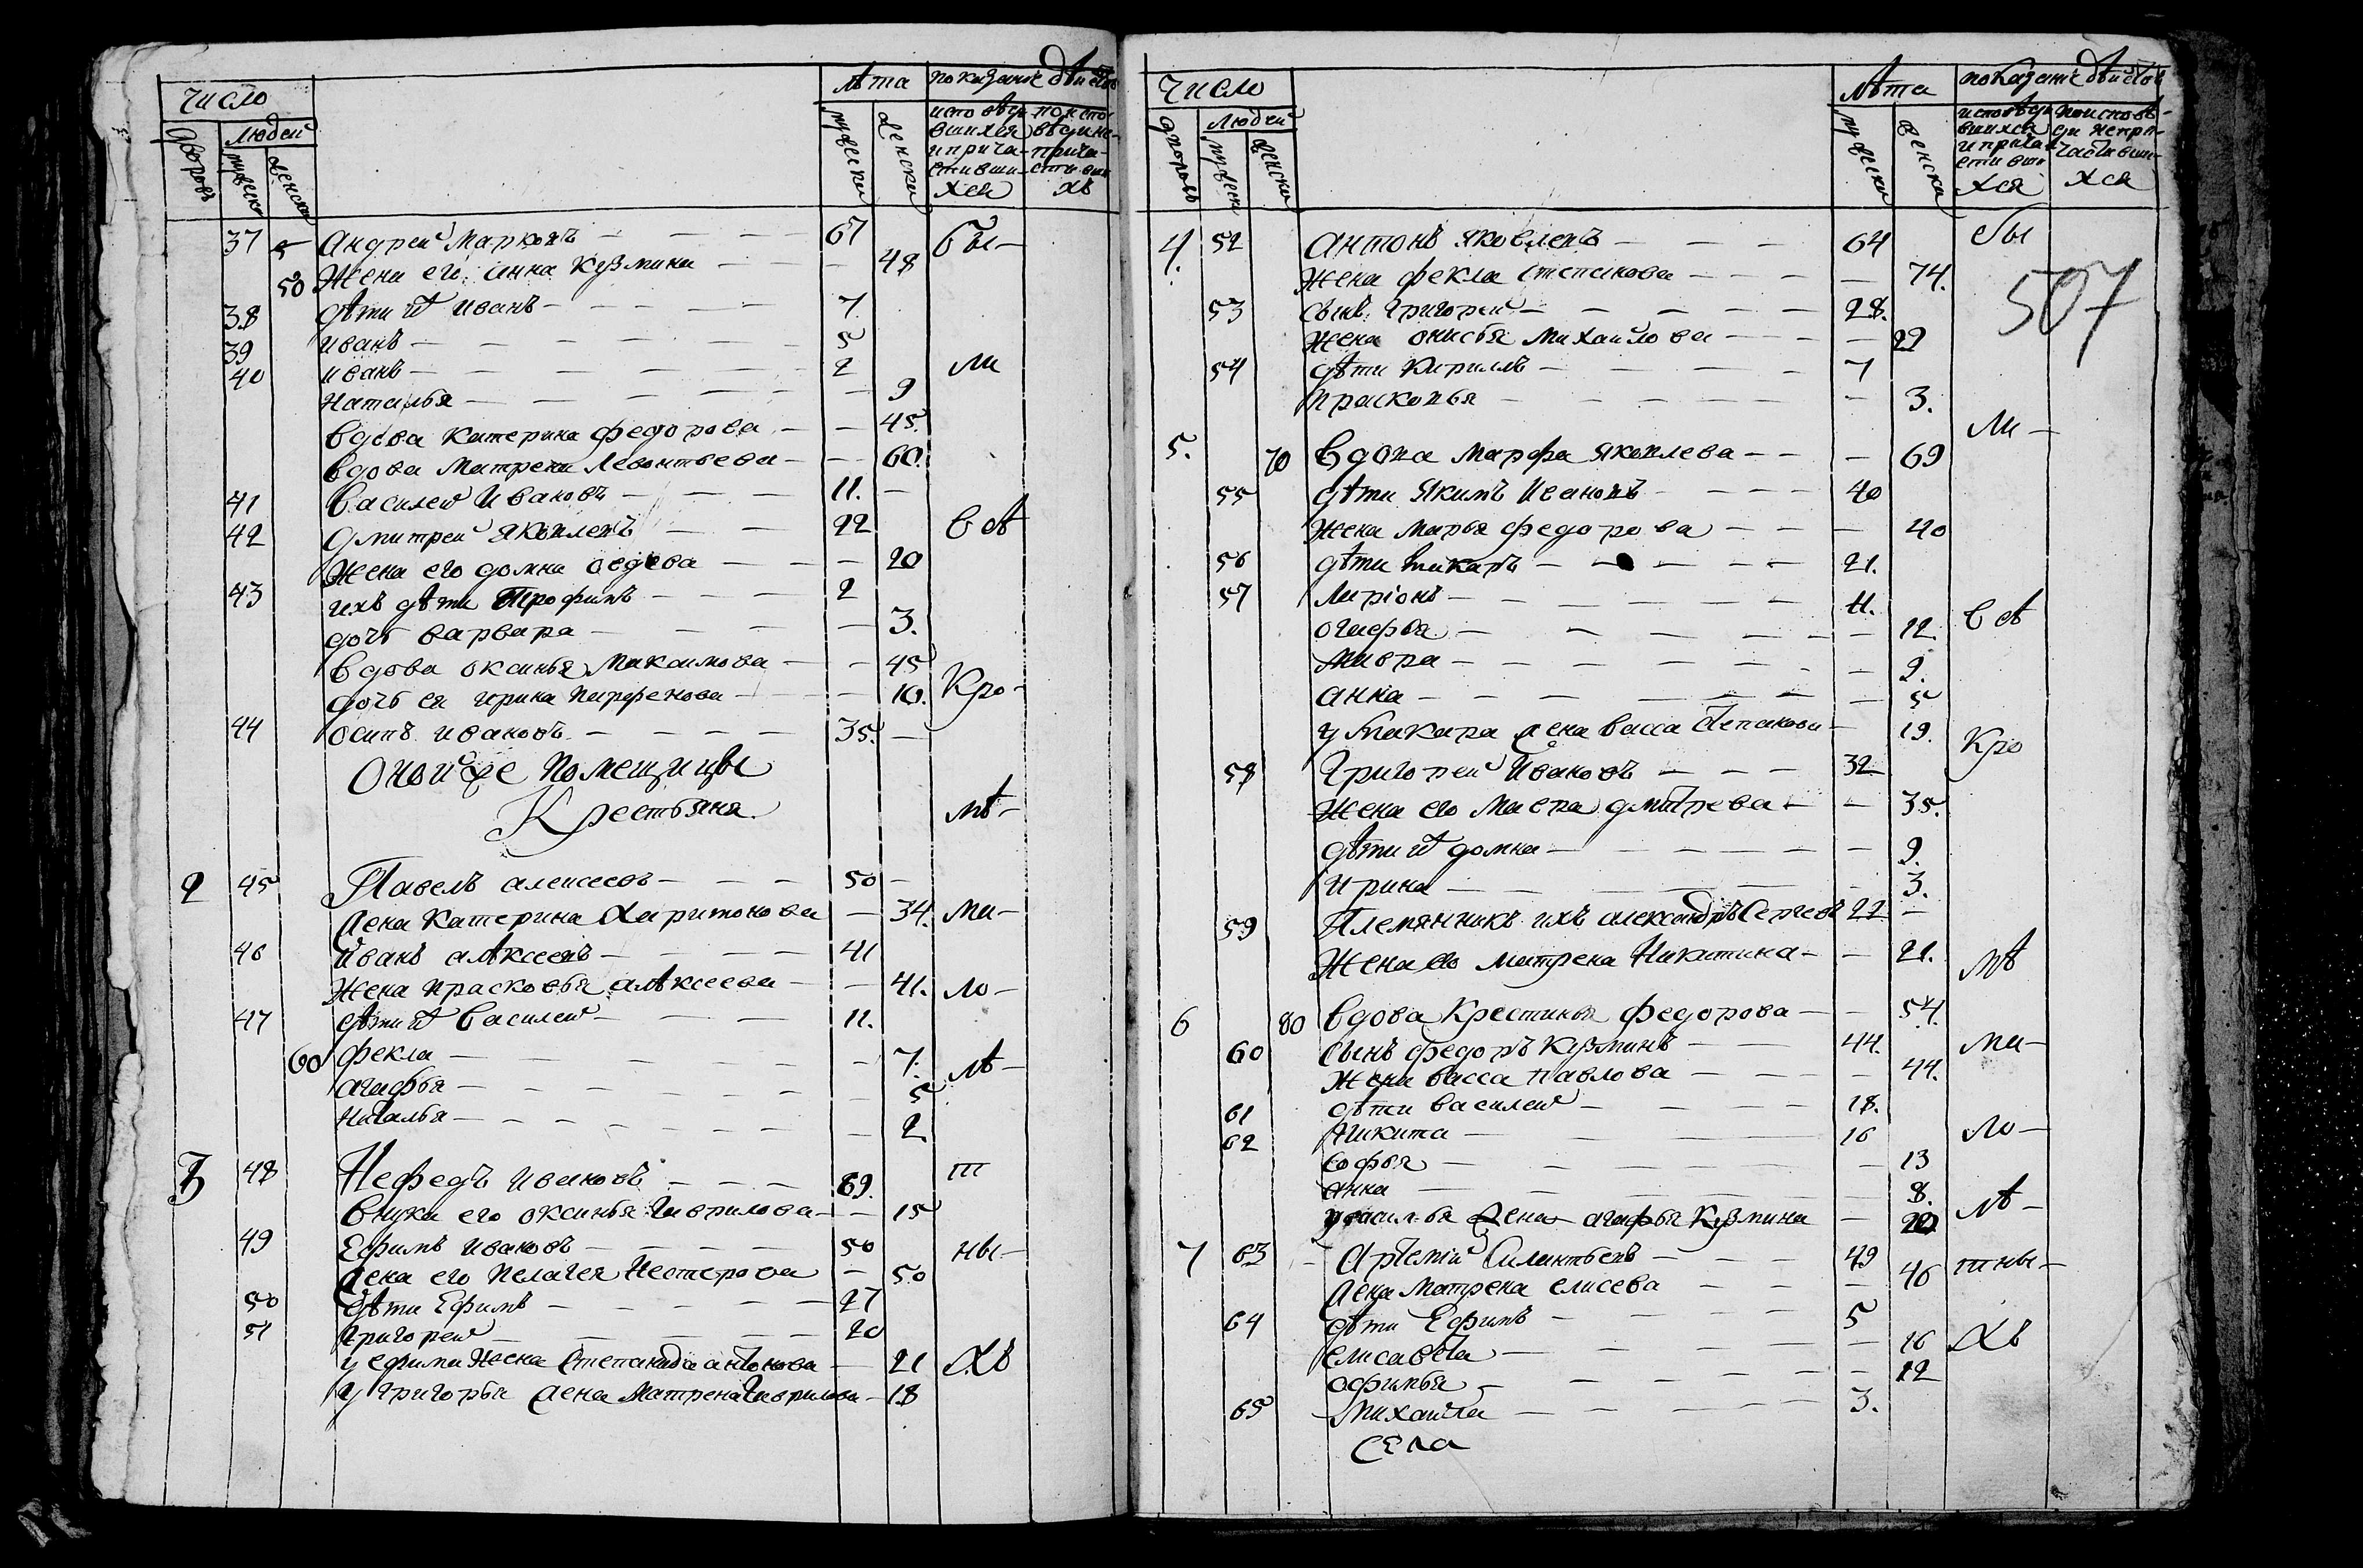 Число
Людей
дворовъ
мужеск
женска
Лѣта
мужески
женски
показание дѣйстов
исповѣда
вшихся
и прича
стивши
хся
37 Андреи Марковъ 67 бы
50 Жена его анна Кузмина 48
38 дѣти ит Иванъ 7
39 иванъ 5
40 иванъ 2 ли
Наталья 9
Вдова Катерина Федорова 45
Вдова Матрена Левонтьева 60
41 Василеи Ивановъ 11
42 Дмитреи Яковлевъ 22 всѣ
Жена его домна 20
43 ихъ дѣти Трофимъ 2
дочь варвара 3
Вдова оксинья Максимова 45
дочь ея ирина Парфенова 10 Кро
44 осипъ ивановъ 35
Оной же Помещицы
Крестьяня мѣ
2 45 Павелъ алексеевъ 50
жена Катерина Харитонова 34 ма
46 Иванъ алѣксеевъ 41
Жена прасковья алѣксеева 41 ло
47 дѣти ит Василеи 11
60 фекла 7 лѣ
агафья 5
Наталья 2
3 48 Нефедъ Ивановъ 89 т
Внука его оксинья Гаврилова 15
49 Ефимъ ивановъ 50 ны
жена его Пелагея Нестерова 50
50 дѣти Ефимъ 27
51 Григореи 20
у ефима жена Степанида антонова 21 хъ
у Григорья жена Матрена Гаврилова 18
Число
Людей
дворовъ
мужеск
женска
Лѣта
мужески
женска
показание дѣйстов
исповѣда
вшихся
и прича
стивши
хся
по исповѣ
ди непри
частивши
хся
4 52 Антонъ Яковлевъ 64 бы
жена фекла степанова 74
507
53 сынъ Григореи 28
жена онисья Михаилова 29
54 дѣти Кирилъ 7
прасковья 3
5 70 Вдова Марфа Яковлева 69 ли
55 дѣти Якимъ Ивановъ 40
жена марья федорова 40
56 дѣти макаръ 21
57 Ларіонъ 11
огафья 12 всѣ
мавра 9
анна 5
у Макара жена Васса Степанова 19
58 Григореи Ивановъ 32 Кро
Жена его Мавра дмитрева 35
дѣти ит домна 9
ирина 3
59 Племянникъ ихъ александръ Сергеевъ 22
Жена его матрена Никитина 21 мѣ
6 80 Вдова Крестинья Федорова 54
60 сынъ федоръ Кузминъ 44 ма
жена васса павлова 44
61 дѣти василеи 18
62 Никита 16 ло
Софья 13
анна 8
у василья жена агафья Кузмина 20 лѣ
7 63 Артемій Силантьевъ 49 тны
жена матрена елисева 46
64 дѣти Ефимъ 5
елисавета 16 хъ
офимья 12
65 Михаила 3
села